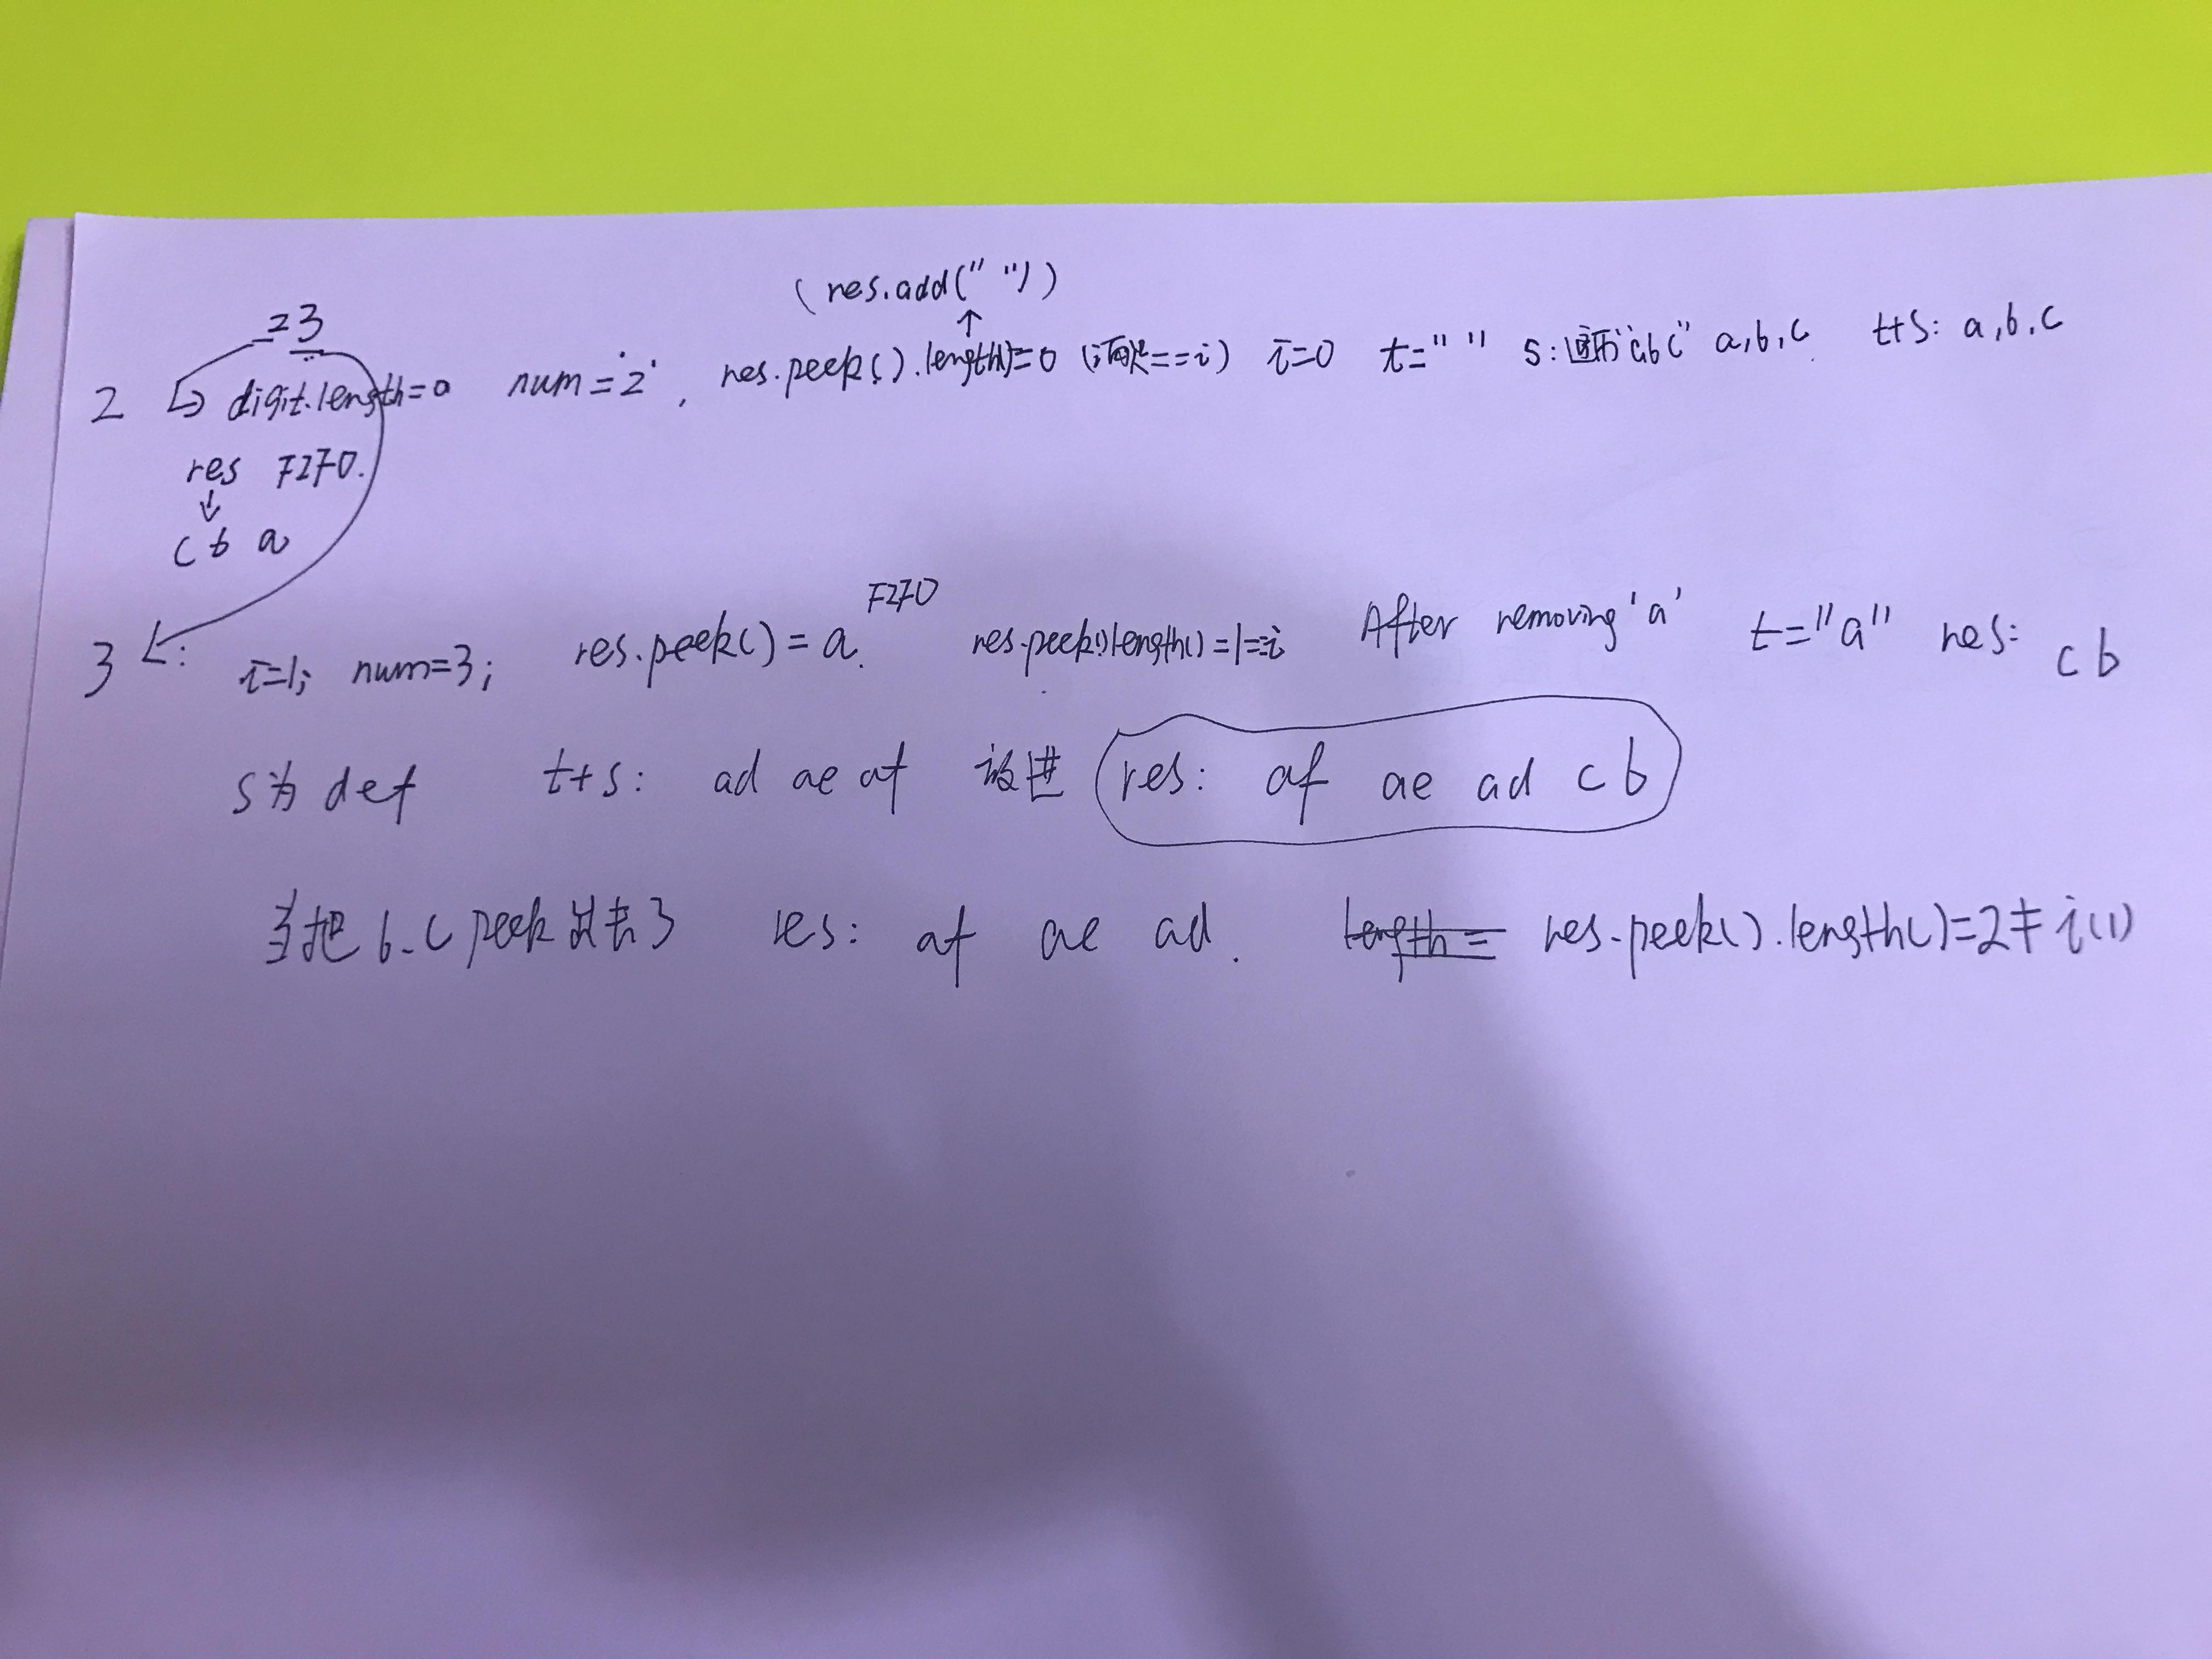 (res.add(" "))
↑
23
2 ↳ digit.length=0 num='2', res.peek().length()=0 (==i) i=0 t=" " s:遍历"abc" a,b,c t+s: a,b,c
res FIFO.
↓
c b a
3 : i=1; num=3; res.peek()=a. FIFO res.peek().length()=1==i After removing 'a' t="a" res: c b
s为 def t+s: ad ae af 被进 res: af ae ad c b
当把 b.c peek 过去了 res: af ae ad. length= res.peek().length()=2≠i(1)